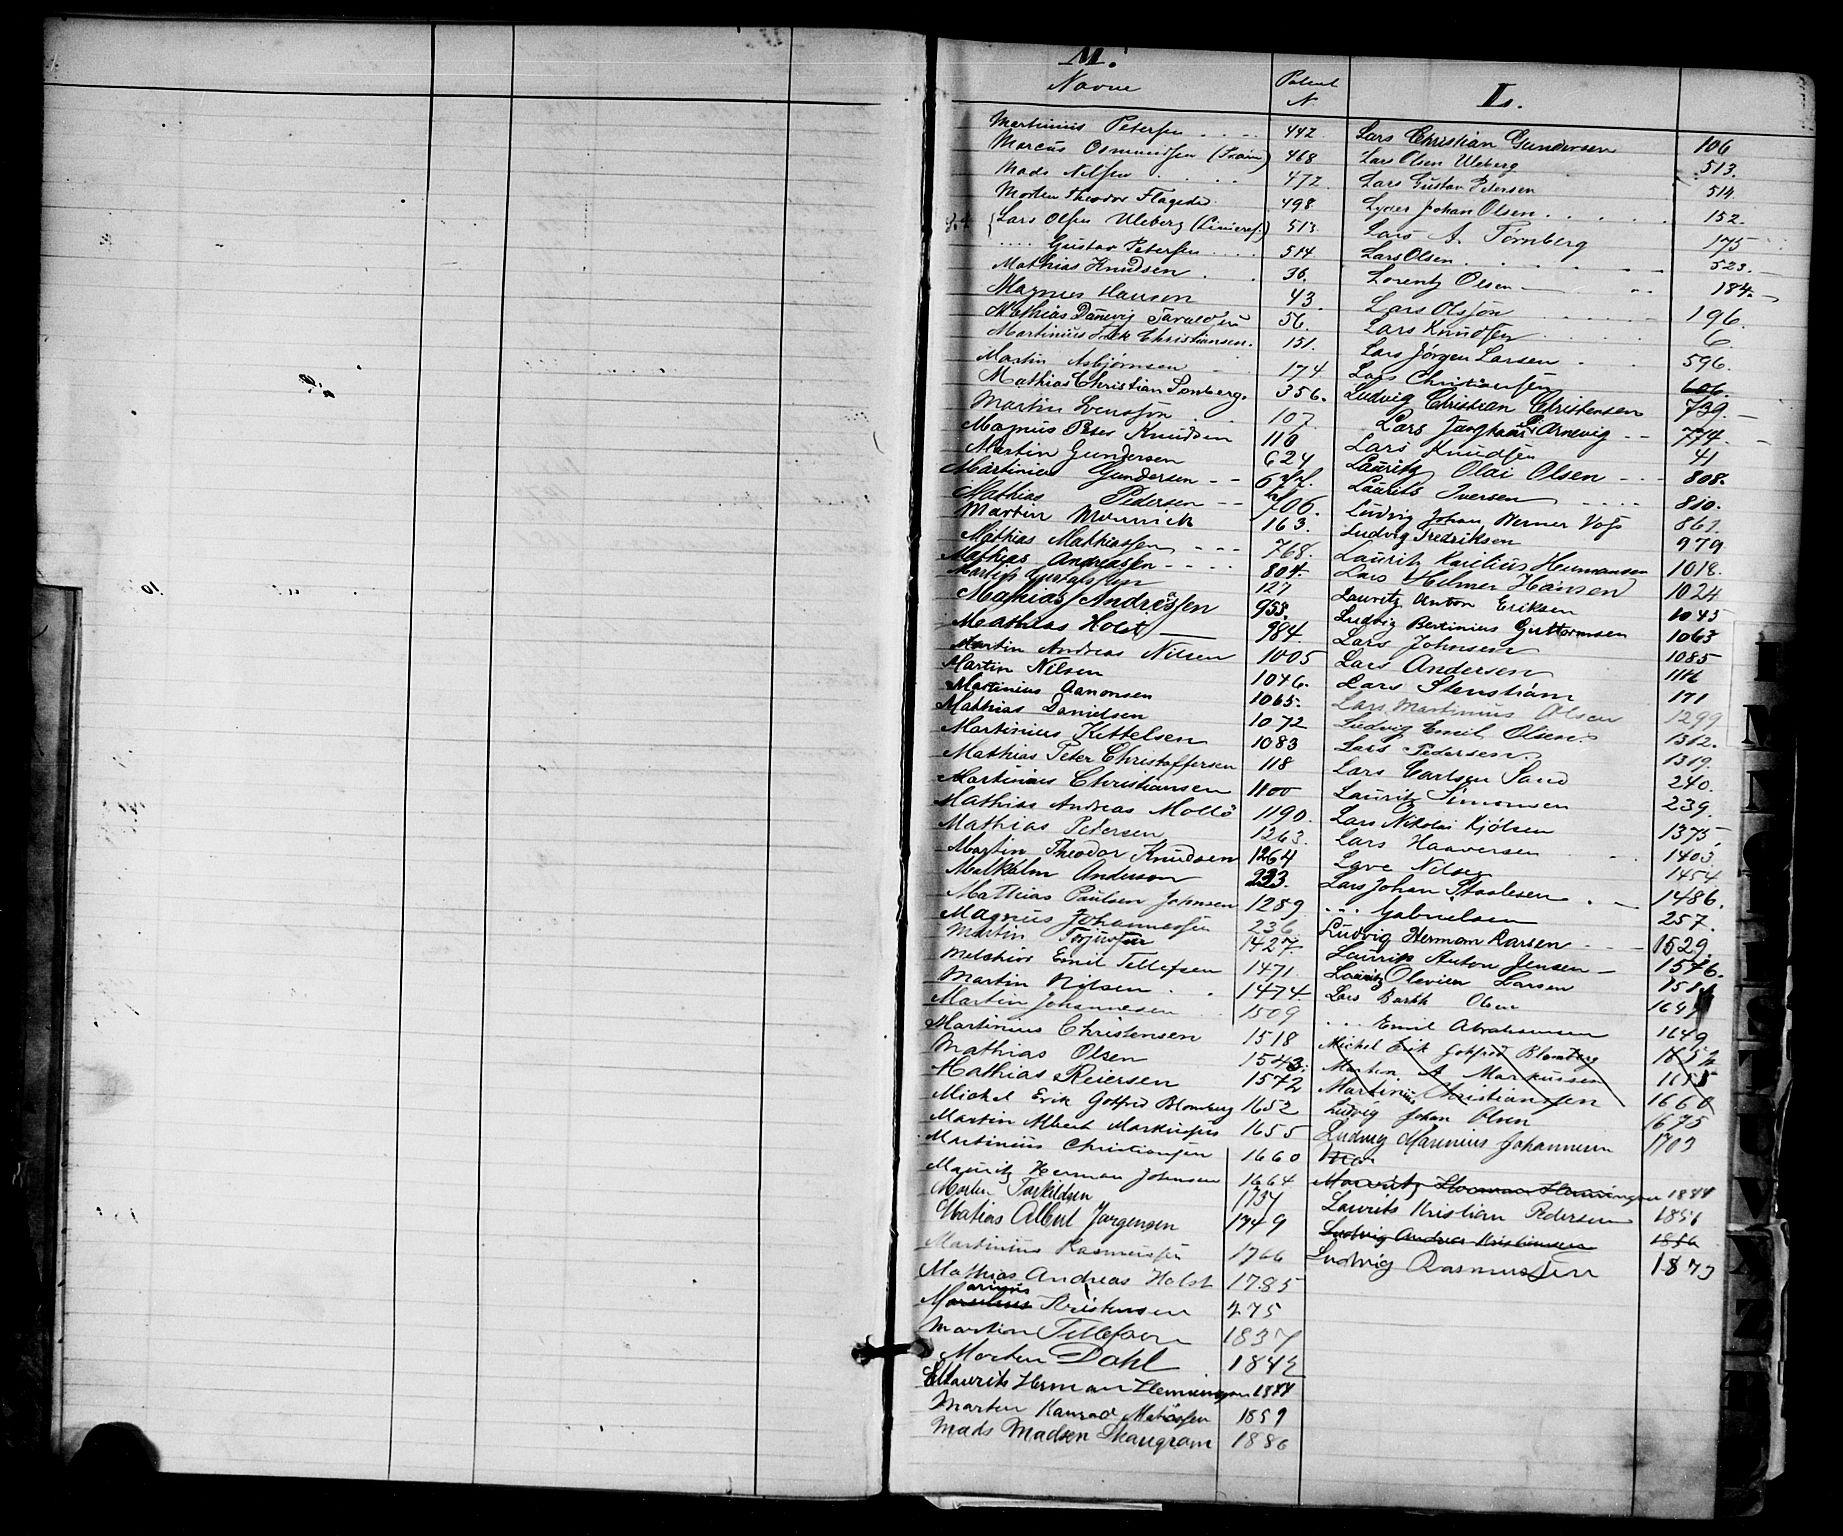 M.
Navne Patent N. L.
Martinius Petersen . . . . 442. Lars Christian Gundersen 106
Marcus Osmundsen 468 Lars Olsen Uleberg 513.
Mads Nilsen . . . . 472. Lars Gustav Petersen 514
Morten Theodor Flagestad 498. Johan Olsen . . . . . 152.
Lars Olsen Uleberg 513. Lars A. Törnberg 175
. . . . Gustav Petersen . . . . 514 Lars Olsen . . . . 523.
Mathias Knudsen . . 36. Lorentz Olsen 184.
Magnus Hansen 43 Lars Olsson 196.
Mathias Danevig 56. Lars Knudsen . . . . 6.
Martinius Christiansen. 151. Lars Jörgen Larsen . 596.
Martin Asbjørnsen . 174. Lars Christiansen 606.
Mathias Christian Tønberg. 356. Ludvig Christian Christensen 739
Martin Svensson . 107 Lars Arnevig 774.
Magnus Peter Knudsen 110 Lars Knudsen 41
Martin Gundersen 624 Lauritz Olai Olsen - - - 808.
Martinius Gundersen - - Laurits Iversen . . . . 810.
Mathias Pedersen - - 706. Ludvig Johan Werner Vogt 861.
Martin 163. Ludvig Fredriksen 979
Mathias Mathiassen - - - 768. Lauritz Karelius Hermansen 1018.
Mathias Andreassen - - - - 804. Lars Helmer Hansen 1024
Martin Gustafsson 127 Lauritz Anton Eriksen 1045
Mathias Andreassen 958. Ludvig Bertinius Guttormsen 1063
Mathias Holst 984. Lars Johnsen 1085
Martin Andreas Nilsen 1005 Lars Andersen 1116
Martin Nilsen 1046. Lars Stenström 171
Martinius Aanonsen 1065. Lars Martinius Olsen 1299
Mathias Danielsen 1072 Ludvig Emil Olsen 1312.
Martinius Kittelsen 1083 Lars Pedersen. 1319.
Mathias Peter Christoffersen 118 Lars Carlsen Sand 240.
Martinius Christiansen 1100 Lauritz Simonsen 239.
Mathias Andreas Mollö 1190. Lars Nikolai Kjölsen 1375
Mathias Petersen 1263. Lars Haaversen . . 1403.
Martin Theodor Knudsen 1264 Nilsen 1454
Malkolm Anderson 233. Lars Johan Staalesen . 1486.
Mathias Paulsen Johnsen 1289 . . . Gabrielsen 257.
Magnus Johannessen 236 Ludvig Herman Larsen - - 1529.
Martin 1427. Laurits Anton Jensen - 1546.
Melchior Emil Tellefsen 1471. Lauritz Olavius Larsen
Martin Nilsen . . 1474. Lars Barth Olsen
Martin Johannesen . 1509 . . . Emil Abrahamsen 1649
Martinius Christensen 1518 Michel Erik Gotfred Blomberg 1652
Mathias Olsen 1543. Morten A Markussen 1655
Mathias Reiersen 1572 Martinius Christiansen 1660
Michel Erik Gotfred Blomberg 1652 Ludvig Johan Olsen 1675
Martin Albert Markussen 1655 Ludvig Marinius Johannesen 1703
Martinius Christiansen 1660
Mauritz Herman Johnsen 1664 Mauritz Herman Henningsen 1844
Morten Torkildsen 1734 Laurits Kristian Pedersen 1851
Mathias Albert Jørgensen 1749 Ludvig Andreas Kristiansen 1856
Martinius Rasmussen 1766 Ludvig Rasmussen 1873
Mathias Andreas Holst 1785
Marius Kristensen 275
Martin Tellefsen 1837
Morten Dahl 1842
Maurits Herman Henningsen 1844
Martin Konrad 1859
Mads Madsen Skaugram 1886
M
N
S
T
U
V